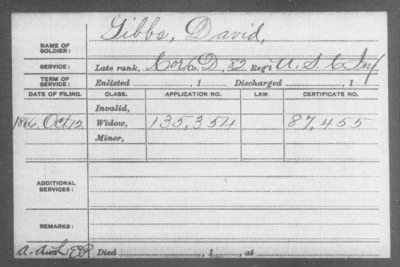 Gibbs, David,
NAME OF SOLDIER:
SERVICE: Late rank, Corp Co. D, 82 Reg't U.S.C. Inf
TERM OF SERVICE: Enlisted , 1 Discharged , 1
DATE OF FILING. CLASS. APPLICATION NO. LAW. CERTIFICATE NO.
Invalid,
1866, Oct 12 Widow, 135,354 87,455
Minor,
ADDITIONAL SERVICES:
REMARKS:
Died , 1 , at